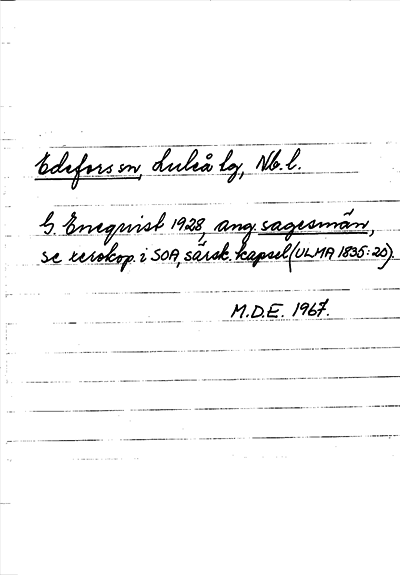 Edefors sn, Luleå lg, Nb. l.
G. Enequist 1928, ang. sagesmän,
se xerokop. i SOA, särsk. kapsel (ULMA 1835:20).
M.D.E. 1967.